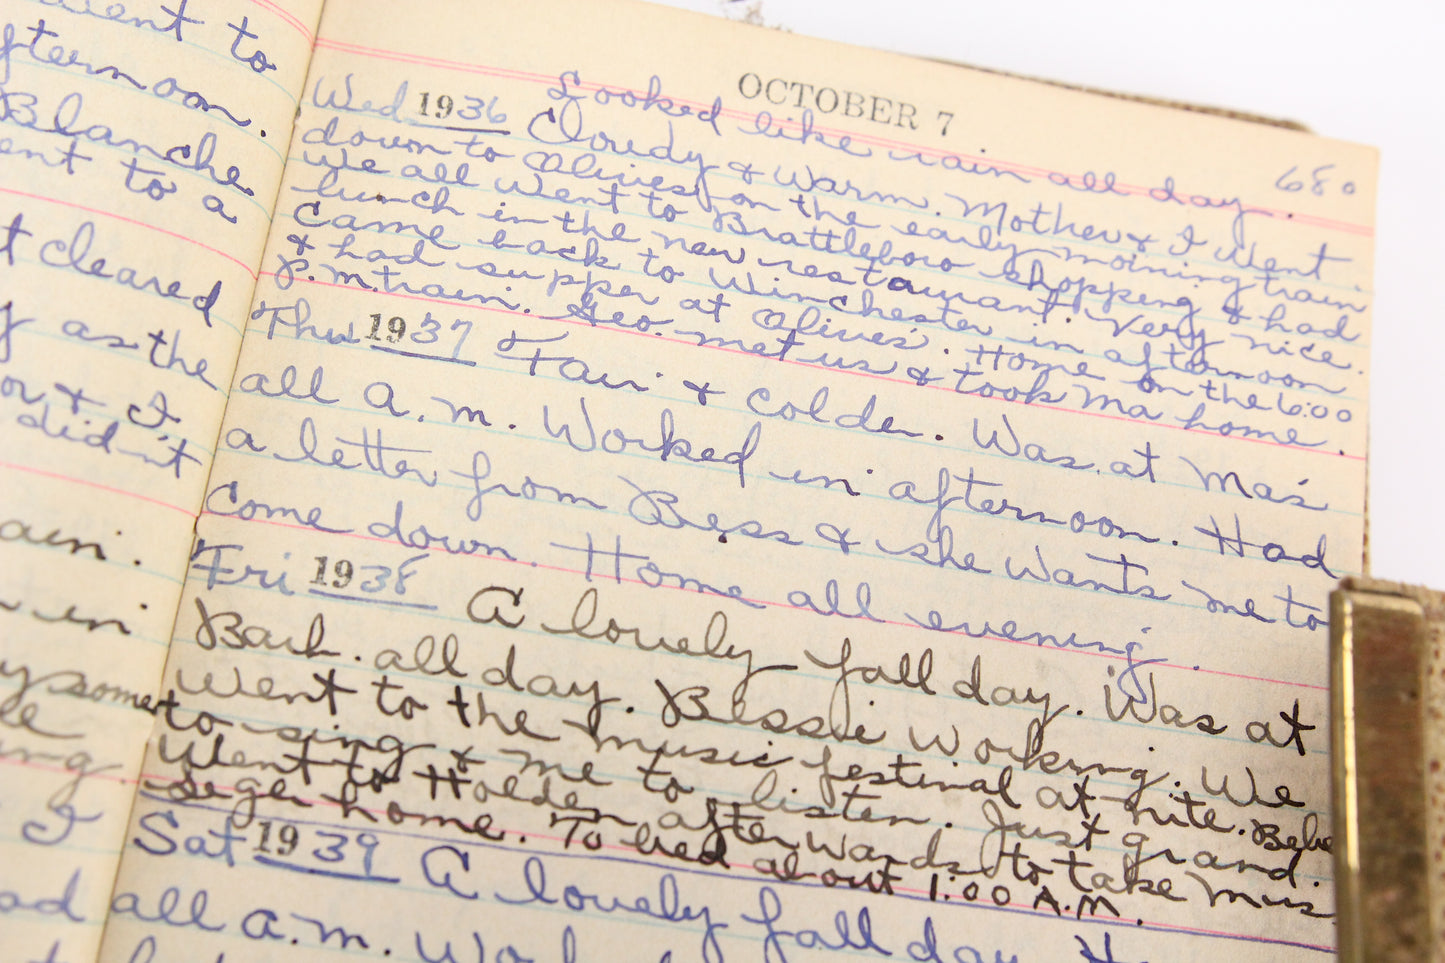 went to
afternoon.
Blanche
ent to a
t cleared
y as the
or & I
didn't
ain.
in
y some
ing.
I
ad
OCTOBER 7
68°
Looked like rain all day.
Wed 1936 Cloudy & Warm. Mother & I went
down to Olives on the early morning train
We all went to Brattleboro shopping & had
lunch in the new restaurant. Very nice.
Came back to Winchester in afternoon
& had supper at Olives'. Home on the 6:00
p.m. train. Geo. met us & took Ma home.
Thu 1937 Fair & colder. Was at Ma's
all A.m. Worked in afternoon. Had
a letter from Bess & she wants me to
come down. Home all evening.
Fri 1938 A lovely fall day. Was at
all day. Bessie working. We
went to the music festival at nite. Bebe
to sing & me to listen. Just grand.
Went to Holden afterwards to take Mus
home. To bed about 1:00 A.M.
Sat 1939 A lovely fall day.
all a.m.